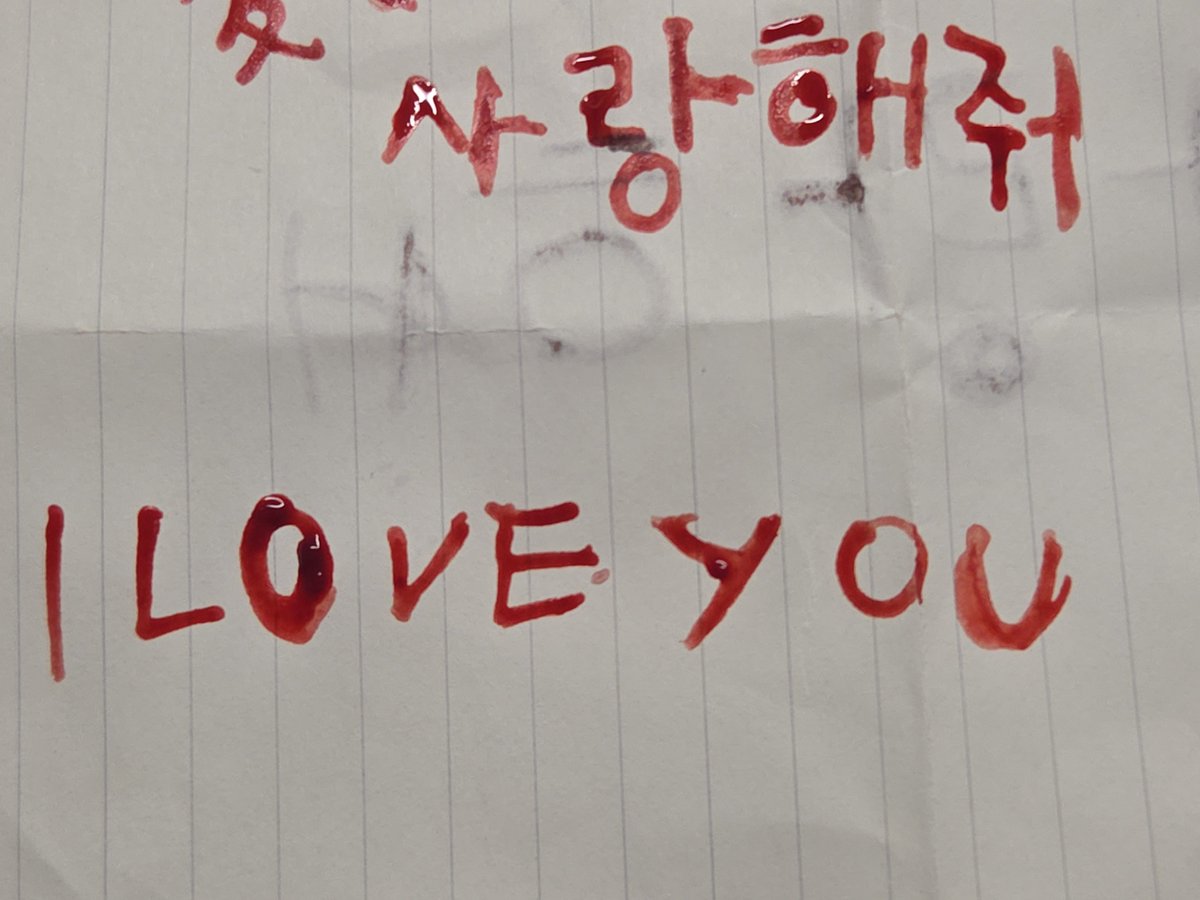 사랑해줘
I LOVE YOU